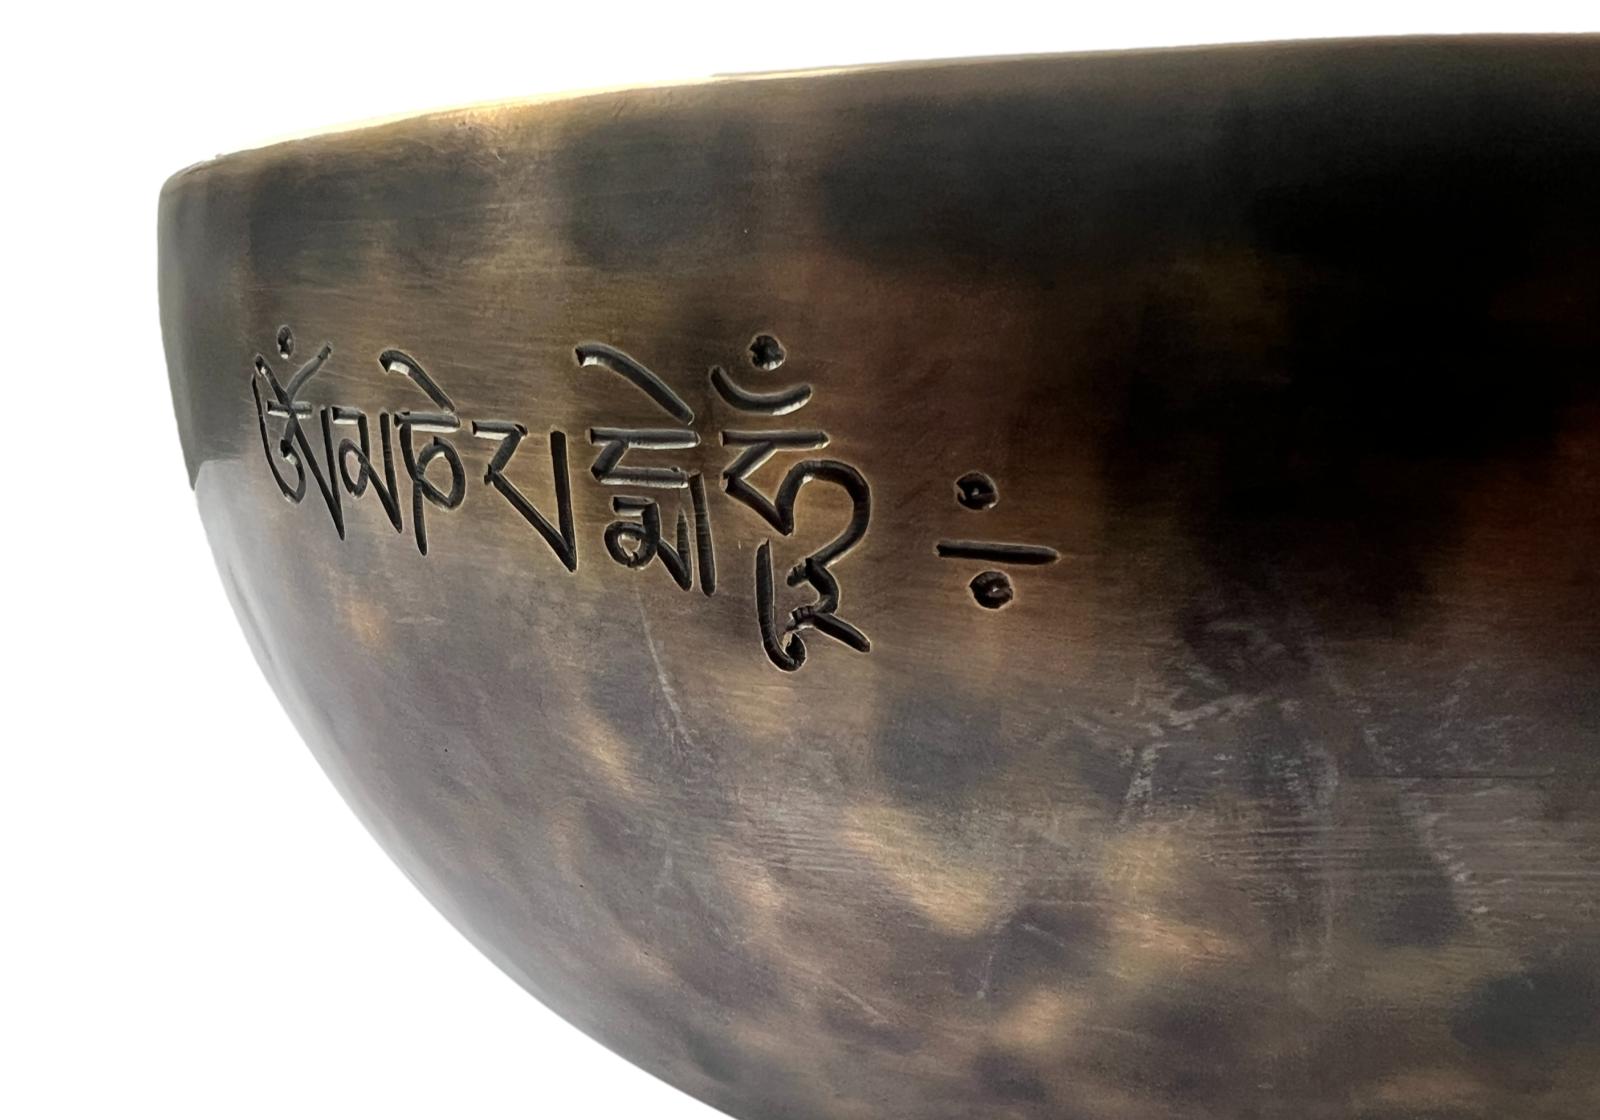 ཨོཾམཎིཔདྨེཧཱུྃ ༔